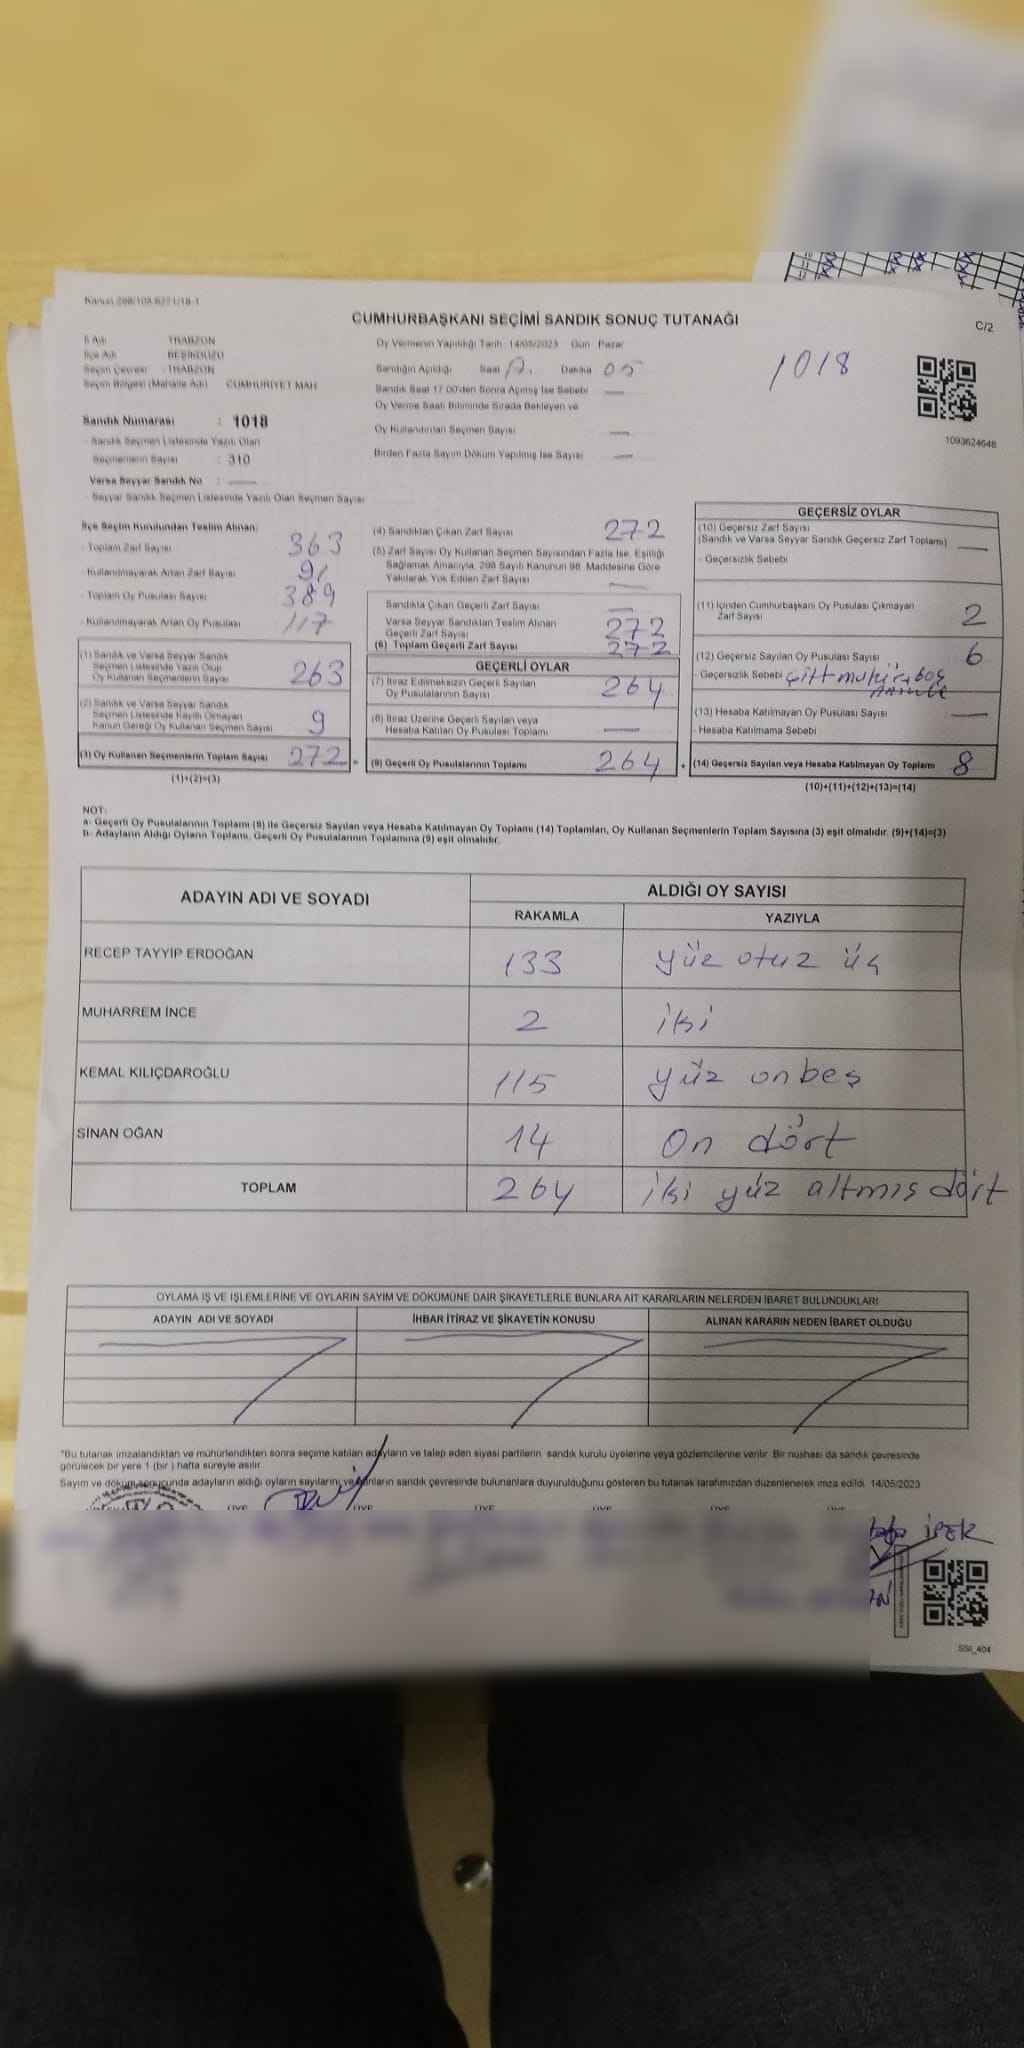 Kanun 298/108 6271/18-1
CUMHURBAŞKANI SEÇİMİ SANDIK SONUÇ TUTANAĞI
C/2
İl Adı TRABZON
İlçe Adı BEŞİKDÜZÜ
Seçim Çevresi : TRABZON
Seçim Bölgesi (Mahalle Adı) CUMHURİYET MAH.
Oy Vermenin Yapıldığı Tarih: 14/05/2023 Gün Pazar
Sandığın Açıldığı Saat Dakika 05
Sandık Saat 17.00'den Sonra Açılmış İse Sebebi —
Oy Verme Saati Bitiminde Sırada Bekleyen ve
Oy Kullandırılan Seçmen Sayısı —
Birden Fazla Sayım Döküm Yapılmış İse Sayısı —
1018
1093624648
Sandık Numarası : 1018
- Sandık Seçmen Listesinde Yazılı Olan
Seçmenlerin Sayısı : 310
Varsa Seyyar Sandık No : —
- Seyyar Sandık Seçmen Listesinde Yazılı Olan Seçmen Sayısı
İlçe Seçim Kurulundan Teslim Alınan:
- Toplam Zarf Sayısı 363
- Kullanılmayarak Artan Zarf Sayısı 91
- Toplam Oy Pusulası Sayısı 389
- Kullanılmayarak Artan Oy Pusulası 117
(1) Sandık ve Varsa Seyyar Sandık
Seçmen Listesinde Yazılı Olup
Oy Kullanan Seçmenlerin Sayısı 263
(2) Sandık ve Varsa Seyyar Sandık
Seçmen Listesinde Kayıtlı Olmayan
Kanun Gereği Oy Kullanan Seçmen Sayısı 9
(3) Oy Kullanan Seçmenlerin Toplam Sayısı 272
(1)+(2)=(3)
(4) Sandıktan Çıkan Zarf Sayısı 272
(5) Zarf Sayısı Oy Kullanan Seçmen Sayısından Fazla İse, Eşitliği
Sağlamak Amacıyla, 298 Sayılı Kanunun 98. Maddesine Göre
Yakılarak Yok Edilen Zarf Sayısı —
Sandıkta Çıkan Geçerli Zarf Sayısı —
Varsa Seyyar Sandıktan Teslim Alınan
Geçerli Zarf Sayısı 272
(6) Toplam Geçerli Zarf Sayısı 272
GEÇERLİ OYLAR
(7) İtiraz Edilmeksizin Geçerli Sayılan
Oy Pusulalarının Sayısı 264
(8) İtiraz Üzerine Geçerli Sayılan veya
Hesaba Katılan Oy Pusulası Toplamı —
(9) Geçerli Oy Pusulalarının Toplamı 264
GEÇERSİZ OYLAR
(10) Geçersiz Zarf Sayısı
(Sandık ve Varsa Seyyar Sandık Geçersiz Zarf Toplamı) —
- Geçersizlik Sebebi
(11) İçinden Cumhurbaşkanı Oy Pusulası Çıkmayan
Zarf Sayısı 2
(12) Geçersiz Sayılan Oy Pusulası Sayısı 6
- Geçersizlik Sebebi
(13) Hesaba Katılmayan Oy Pusulası Sayısı —
- Hesaba Katılmama Sebebi
(14) Geçersiz Sayılan veya Hesaba Katılmayan Oy Toplamı 8
(10)+(11)+(12)+(13)=(14)
NOT:
a- Geçerli Oy Pusulalarının Toplamı (9) ile Geçersiz Sayılan veya Hesaba Katılmayan Oy Toplamı (14) Toplamları, Oy Kullanan Seçmenlerin Toplam Sayısına (3) eşit olmalıdır. (9)+(14)=(3)
b- Adayların Aldığı Oyların Toplamı, Geçerli Oy Pusulalarının Toplamına (9) eşit olmalıdır.
ADAYIN ADI VE SOYADI
ALDIĞI OY SAYISI
RAKAMLA YAZIYLA
RECEP TAYYİP ERDOĞAN 133 yüz otuz üç
MUHARREM İNCE 2 iki
KEMAL KILIÇDAROĞLU 115 yüz onbeş
SİNAN OĞAN 14 on dört
TOPLAM 264 iki yüz altmış dört
OYLAMA İŞ VE İŞLEMLERİNE VE OYLARIN SAYIM VE DÖKÜMÜNE DAİR ŞİKAYETLERLE BUNLARA AİT KARARLARIN NELERDEN İBARET BULUNDUKLARI
ADAYIN ADI VE SOYADI İHBAR İTİRAZ VE ŞİKAYETİN KONUSU ALINAN KARARIN NEDEN İBARET OLDUĞU
*Bu tutanak imzalandıktan ve mühürlendikten sonra seçime katılan adayların ve talep eden siyasi partilerin sandık kurulu üyelerine veya gözlemcilerine verilir. Bir nüshası da sandık çevresinde
görülecek bir yere 1 (bir ) hafta süreyle asılır.
Sayım ve döküm sonucunda adayların aldığı oyların sayılarını ve bunların sandık çevresinde bulunanlara duyurulduğunu gösteren bu tutanak tarafımızdan düzenlenerek imza edildi. 14/05/2023
ÜYE ÜYE ÜYE ÜYE ÜYE ÜYE
İPEK
SSI_404